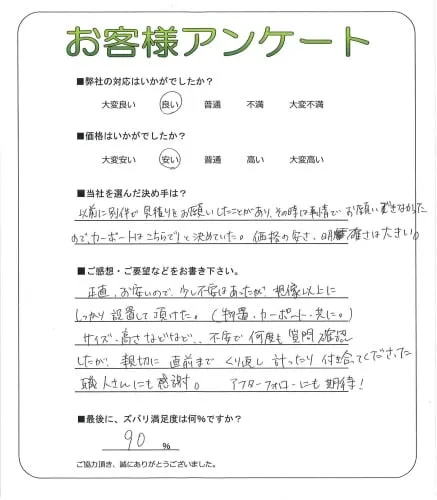 お客様アンケート
■弊社の対応はいかがでしたか？
大変良い 良い 普通 不満 大変不満
■価格はいかがでしたか？
大変安い 安い 普通 高い 大変高い
■当社を選んだ決め手は？
以前に別件で見積りをお願いしたことがあり、その時は事情でお願いできなかった
ので、カーポートはこちらで！と決めていた。価格の安さ、明確さは大きい。
■ご感想・ご要望などをお書き下さい。
正直、お安いので、少し不安はあったが、想像以上に
しっかり設置して頂けた。（物置・カーポート・共に。）
サイズ・高さなどなど、、不安で何度も質問確認
したが、親切に直前までくり返し計ったり付き合ってくださった
職人さんにも感謝。 アフターフォローにも期待！
■最後に、ズバリ満足度は何％ですか？
90 ％
ご協力頂き、誠にありがとうございました。